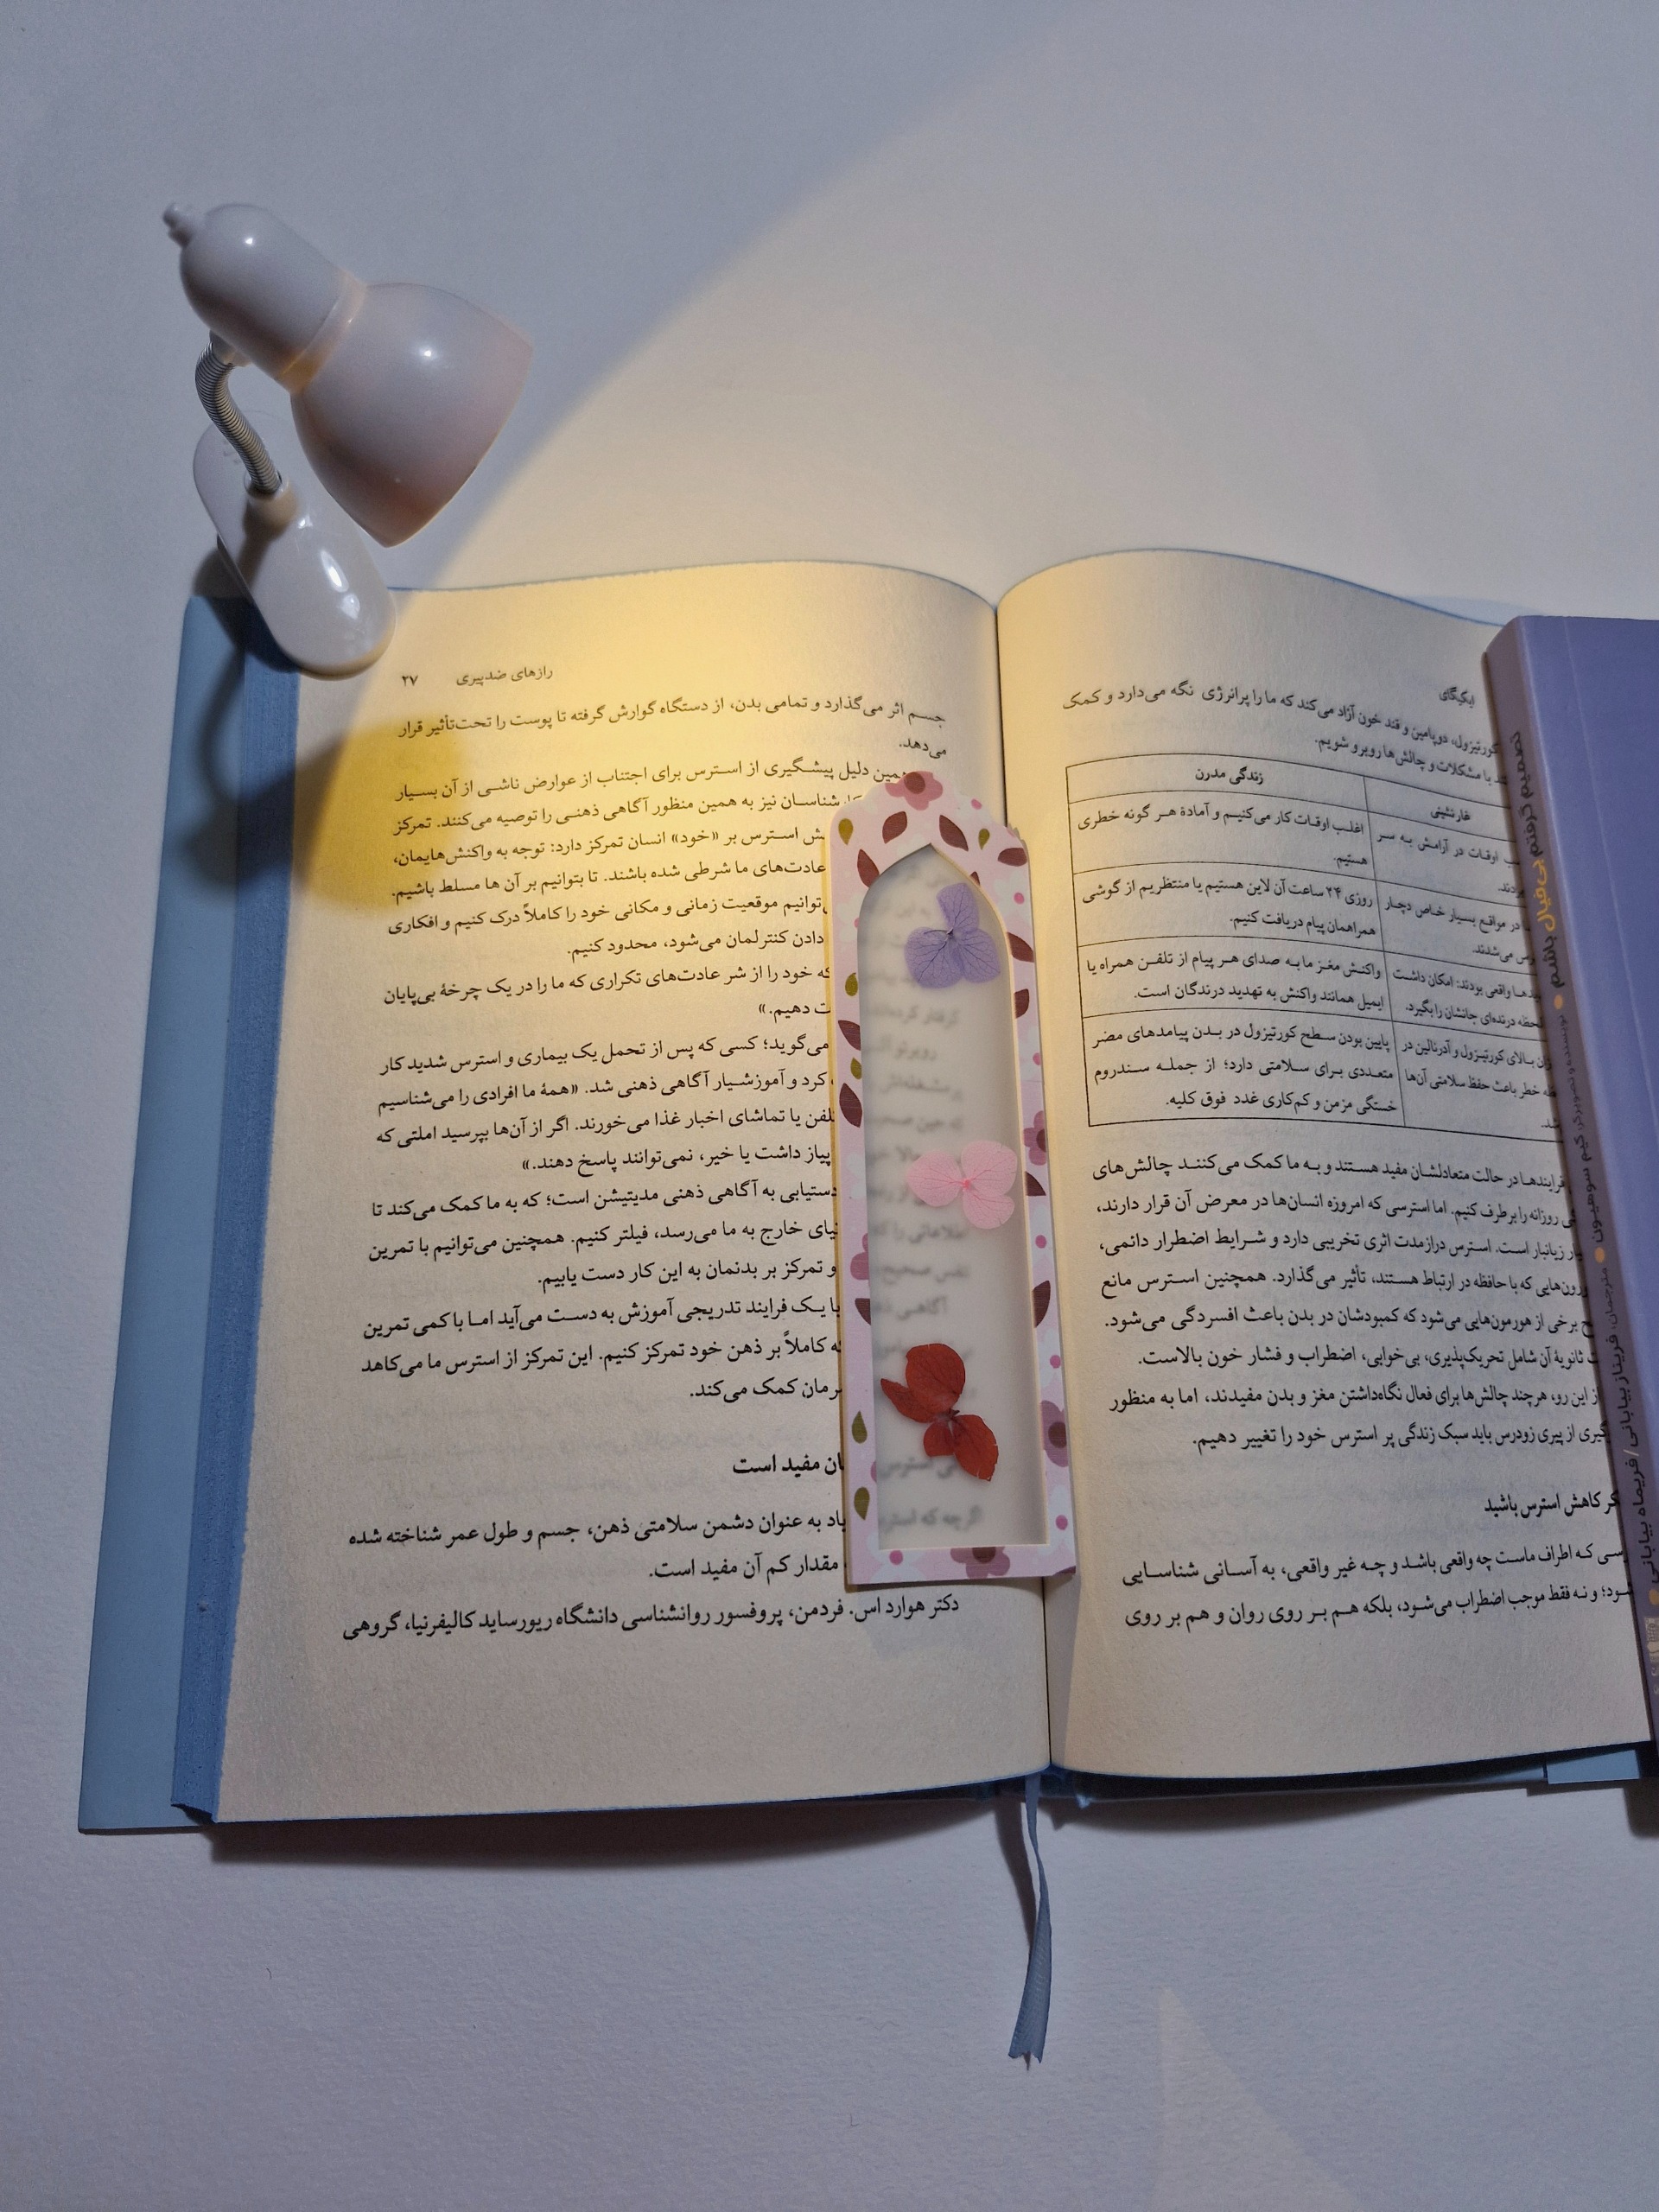 ایکیگای
کورتیزول، دوپامین و قند خون آزاد می‌کند که ما را پرانرژی نگه می‌دارد و کمک
با مشکلات و چالش‌ها روبرو شویم.
غارنشینی
زندگی مدرن
اوقات در آرامش به سر
اغلب اوقات کار می‌کنیم و آمادهٔ هر گونه خطری
هستیم.
در مواقع بسیار خاص دچار
می‌شدند.
روزی ۲۴ ساعت آن لاین هستیم یا منتظریم از گوشی
همراهمان پیام دریافت کنیم.
واقعی بودند: امکان داشت
لحظه درنده‌ای جانشان را بگیرد.
واکنش مغز ما به صدای هر پیام از تلفن همراه یا
ایمیل همانند واکنش به تهدید درندگان است.
بالای کورتیزول و آدرنالین در
خطر باعث حفظ سلامتی آن‌ها
پایین بودن سطح کورتیزول در بدن پیامدهای مضر
متعددی برای سلامتی دارد؛ از جمله سندروم
خستگی مزمن و کم‌کاری غدد فوق کلیه.
فرایندها در حالت متعادلشان مفید هستند و به ما کمک می‌کنند چالش‌های
روزانه را برطرف کنیم. اما استرسی که امروزه انسان‌ها در معرض آن قرار دارند،
زیانبار است. استرس درازمدت اثری تخریبی دارد و شرایط اضطرار دائمی،
که با حافظه در ارتباط هستند، تأثیر می‌گذارد. همچنین استرس مانع
برخی از هورمون‌هایی می‌شود که کمبودشان در بدن باعث افسردگی می‌شود.
ثانویهٔ آن شامل تحریک‌پذیری، بی‌خوابی، اضطراب و فشار خون بالاست.
از این رو، هرچند چالش‌ها برای فعال نگاه‌داشتن مغز و بدن مفیدند، اما به منظور
از پیری زودرس باید سبک زندگی پر استرس خود را تغییر دهیم.
کاهش استرس باشید
که اطراف ماست چه واقعی باشد و چه غیر واقعی، به آسانی شناسایی
و نه فقط موجب اضطراب می‌شود، بلکه هم بر روی روان و هم بر روی
تصمیم گرفتم بی‌خیال باشم
نویسنده و تصویرگر: کیم سوهیون
مترجمان: فریناز بیابانی / فریماه بیابانی
رازهای ضدپیری ۲۷
جسم اثر می‌گذارد و تمامی بدن، از دستگاه گوارش گرفته تا پوست را تحت‌تأثیر قرار
می‌دهد.
همین دلیل پیشگیری از استرس برای اجتناب از عوارض ناشی از آن بسیار
کارشناسان نیز به همین منظور آگاهی ذهنی را توصیه می‌کنند. تمرکز
استرس بر «خود» انسان تمرکز دارد: توجه به واکنش‌هایمان،
عادت‌های ما شرطی شده باشند. تا بتوانیم بر آن ها مسلط باشیم.
موقعیت زمانی و مکانی خود را کاملاً درک کنیم و افکاری
دادن کنترلمان می‌شود، محدود کنیم.
که خود را از شر عادت‌های تکراری که ما را در یک چرخهٔ بی‌پایان
دهیم.»
می‌گوید؛ کسی که پس از تحمل یک بیماری و استرس شدید کار
کرد و آموزشیار آگاهی ذهنی شد. «همهٔ ما افرادی را می‌شناسیم
یا تماشای اخبار غذا می‌خورند. اگر از آن‌ها بپرسید املتی که
پیاز داشت یا خیر، نمی‌توانند پاسخ دهند.»
دستیابی به آگاهی ذهنی مدیتیشن است؛ که به ما کمک می‌کند تا
خارج به ما می‌رسد، فیلتر کنیم. همچنین می‌توانیم با تمرین
و تمرکز بر بدنمان به این کار دست یابیم.
با یک فرایند تدریجی آموزش به دست می‌آید اما با کمی تمرین
کاملاً بر ذهن خود تمرکز کنیم. این تمرکز از استرس ما می‌کاهد
کمک می‌کند.
مفید است
به عنوان دشمن سلامتی ذهن، جسم و طول عمر شناخته شده
مقدار کم آن مفید است.
دکتر هوارد اس. فردمن، پروفسور روانشناسی دانشگاه ریورساید کالیفرنیا، گروهی